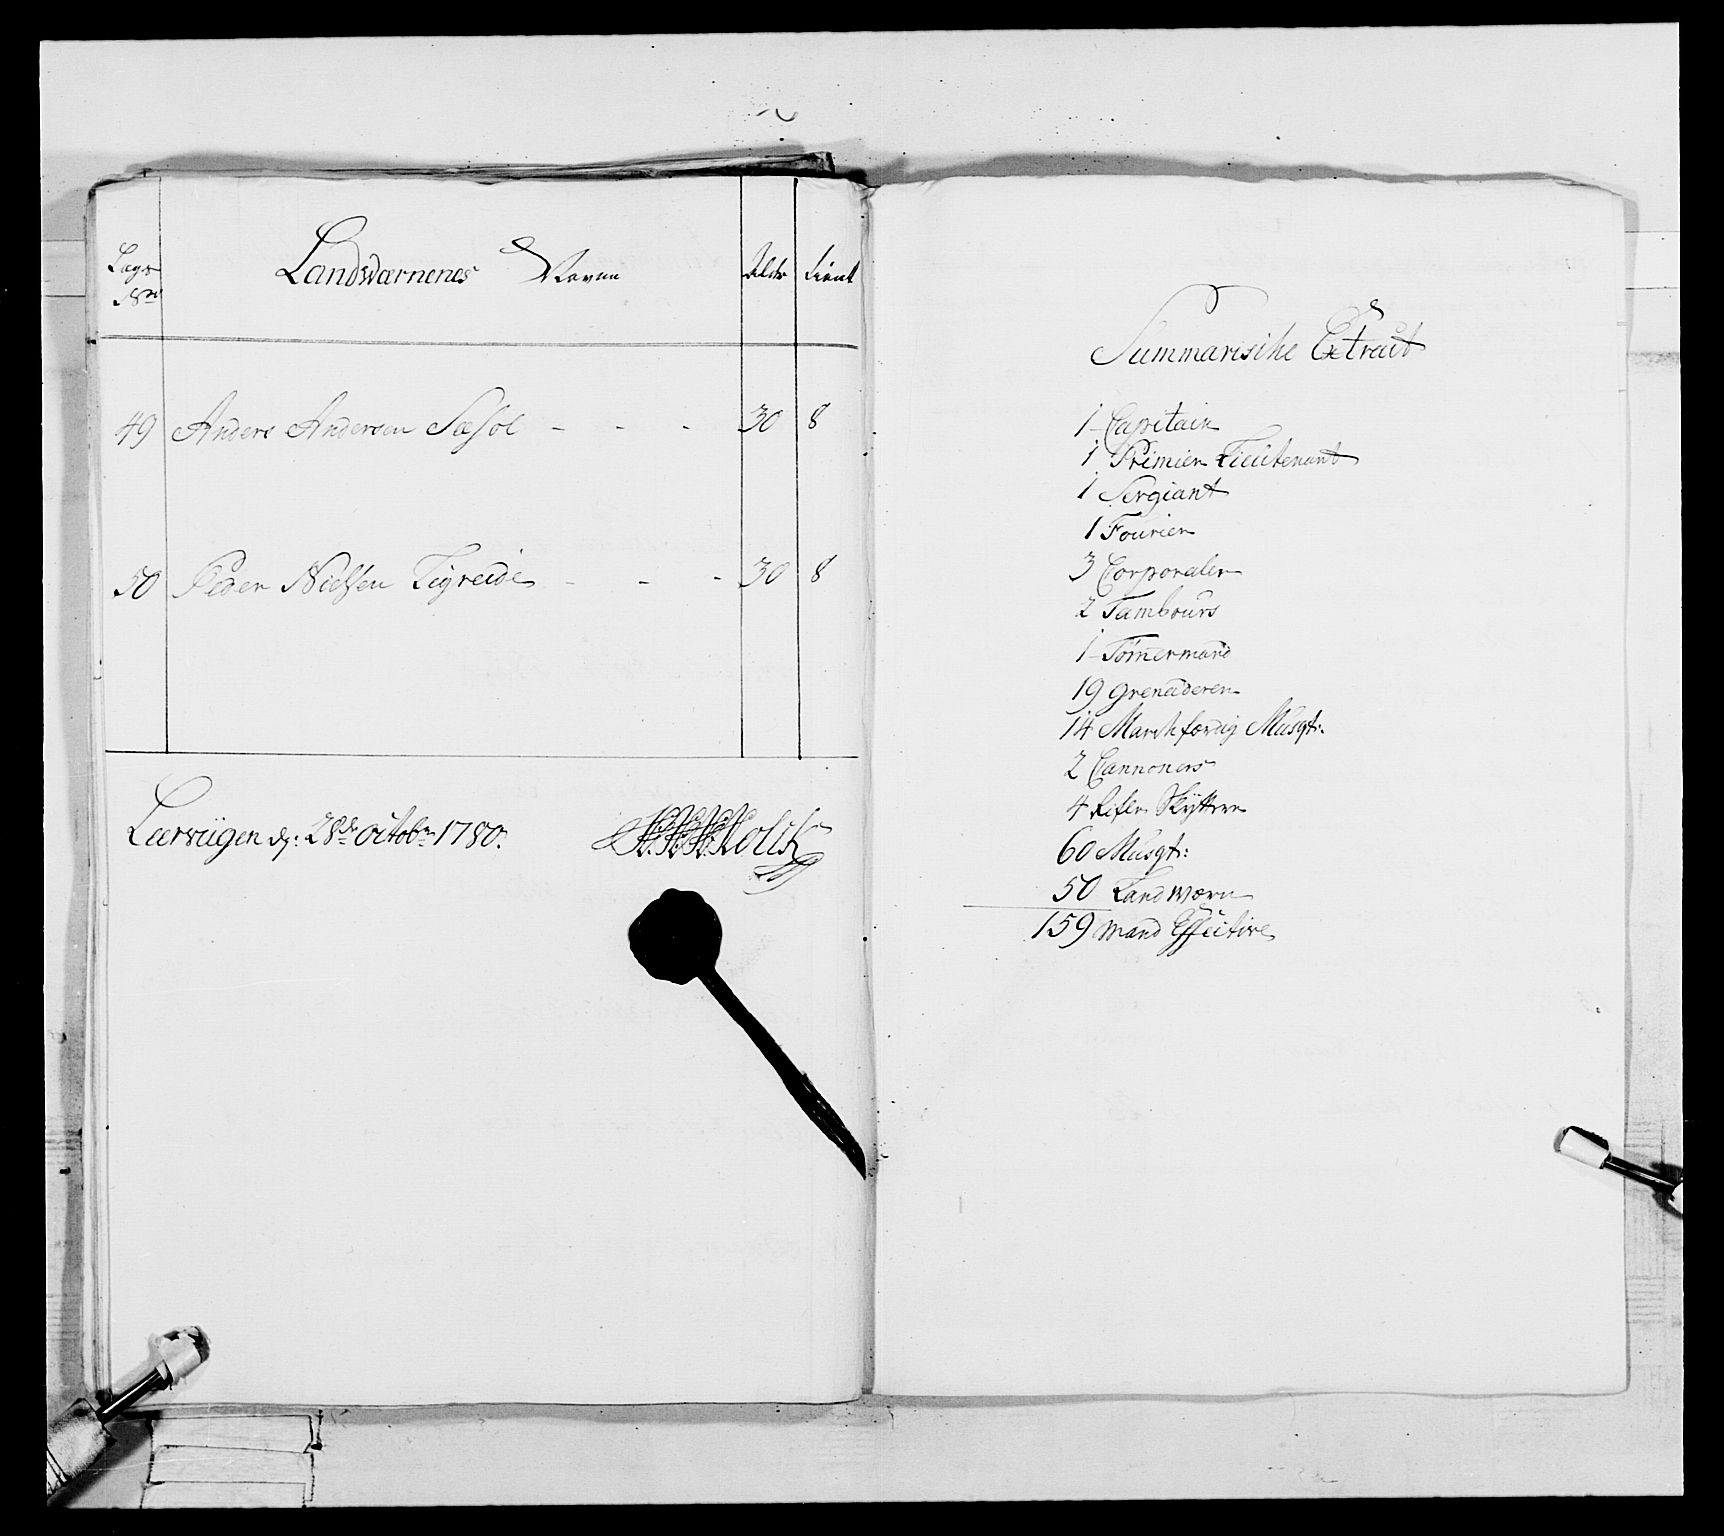 Lægs Landwærnenes Navne Alder tient
No
49 Anders Andersen Sæsol - - - 30 8
50 Peder Nielsen Tigreide - - - 30 8
Leervügen d: 28de Octobr 1780.
Summarishe Extract
1 Capitain
1 Primier Lieutenant
1 Sergiant
1 Fourier
3 Corporaler
2 Tambours
1 Tömermand
19 Grenaderer
14 Marchfærdig Musqt:
2 Cannoners
4 Rifle Skÿttere
60 Musqt:
50 Landwærn
159 Mand Effective